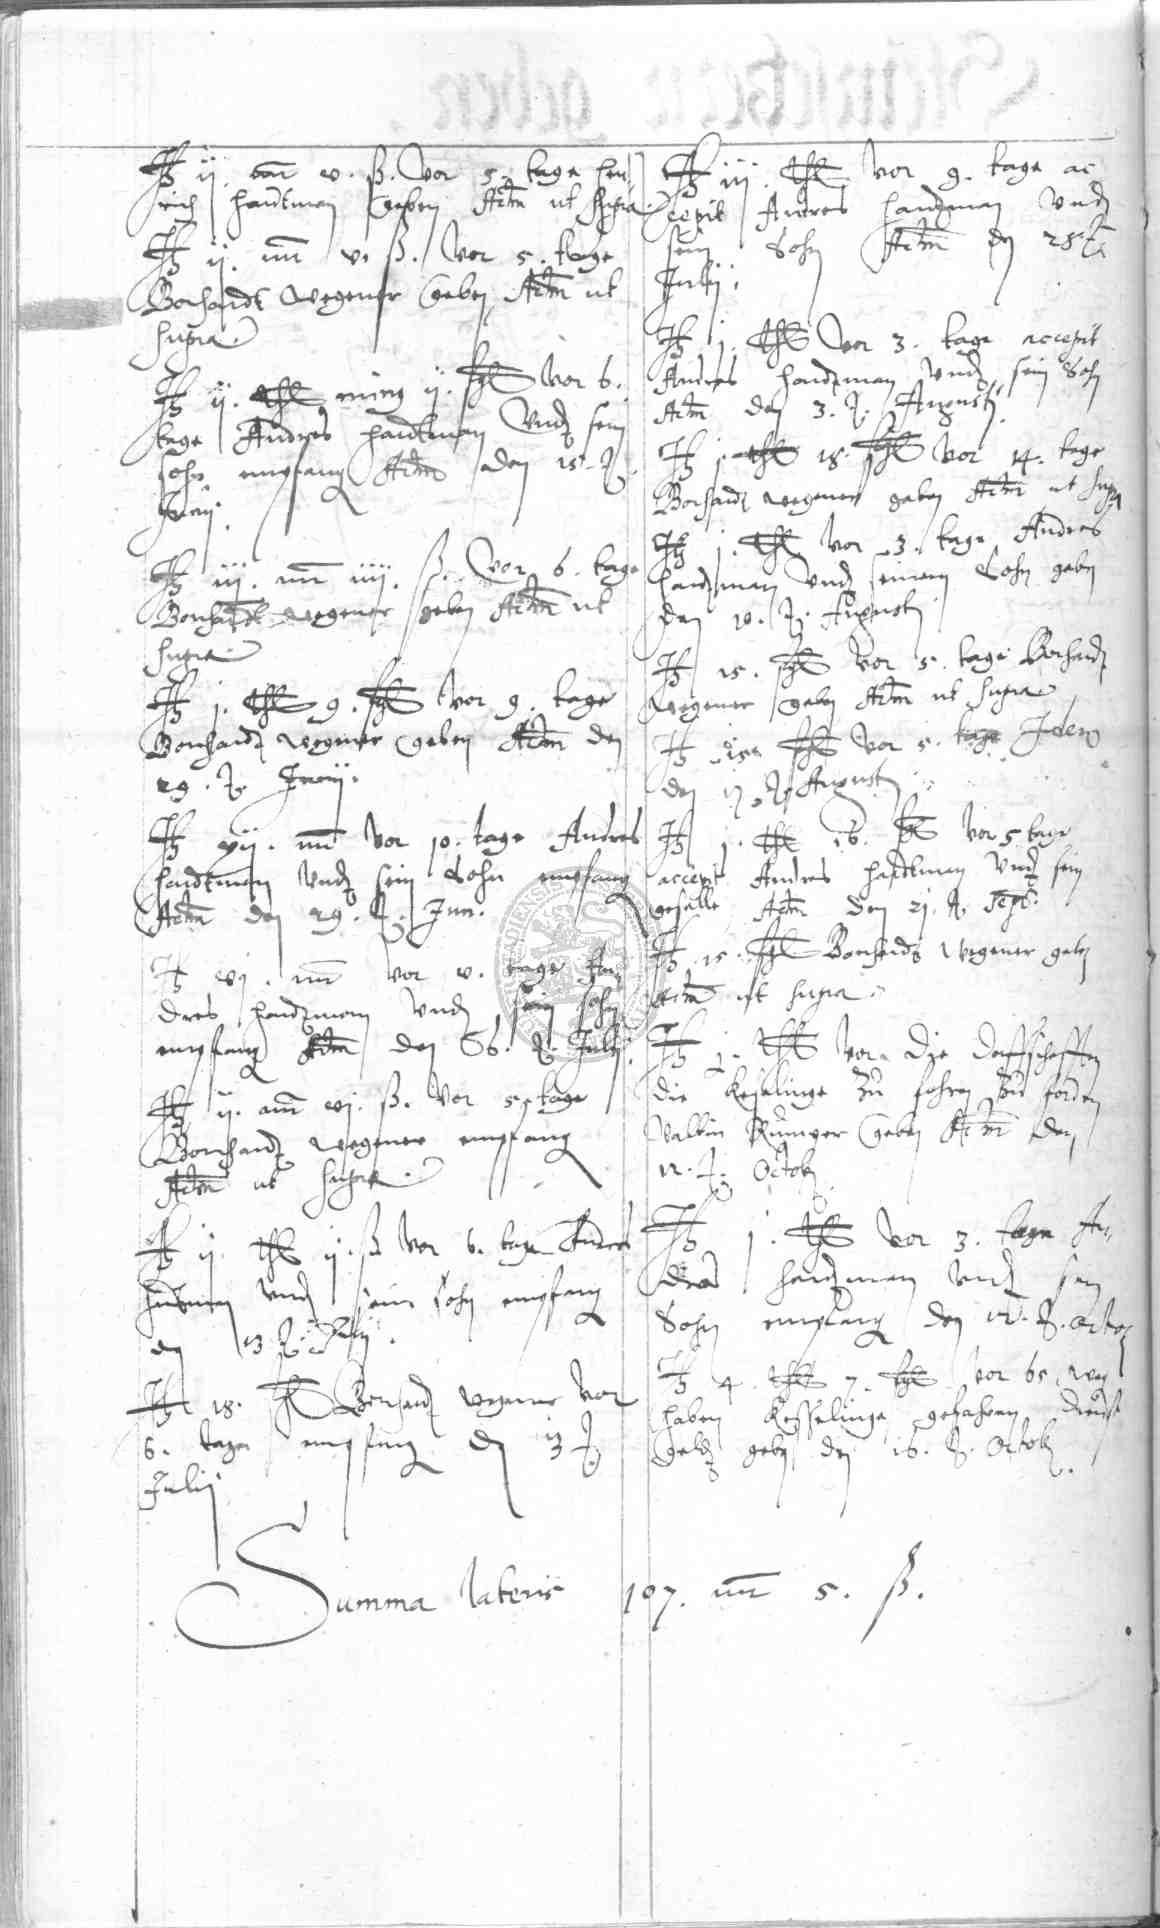 It ij. mr v. ß. vor 5. tage Hen
rich Hardtman geben Actm ut supra
It ij. mr v. ß. vor 5. tage
Borhardt Wegener geben Actm ut
supra.
It ij. thl ming ij. ßgl vor 6.
tage Andres Hardtman Vnd sein
sohn empfang Actm den 15.
Junij.
It iij. mr iiij. ß. vor 6. tage
Borchardt Wegener geben Actm ut
supra.
It j. thl 9. ßgl vor 9. tage
Borchardt Wegener geben Actm den
29. Junij.
It xij. mr vor 10. tage Andres
Hardtman Vnd sein Sohn empfang
Actm den 29. Jun.
It vj. mr vor v. tage An
dres Hardtman Vnd sein sohn
empfang Actm den 6. Julij.
It ij. mr vj. ß. vor 5. tage
Borchardt Wegener empfang
Actm ut supra.
It ij. thl ij. ß vor 6. tage Andres
Hardtman Vnd sein sohn empfang
den 13 Julij.
It 18. ßgl Borhardt Wegener vor
6. tage empfing den 13
Julij
It iij. thl vor 9. tage ac
cepit Andres Hardtman Vnd
sein Sohn Actm den 28
Julij.
It j. thl vor 3. tage accepit
Andres Hardtman Vnd sein Sohn
Actm den 3. Augusti.
It j. thl 18. ßgl vor 14. tage
Borhardt Wegener geben Actm ut supra
It j. thl vor 3. tage Andres
Hardtman Vnd seinem Sohn geben
den 10. Augusti
It 15. ßgl vor 5. tage Borhardt
Wegener geben Actm ut supra
It 15. ßgl vor 5. tage Idem
den 17. Augusti
It j. thl 16. ßgl vor 5 tage
accepit Andres Hardtman Vnd sein
geselle Actm den 21. Sept.
It 15. ßgl Borchardt Wegener geben
Actm ut supra.
It j. thl vor die
die Keselinge zu fohren zu fordern
Valtin geben Actm den
12. Octob
It j. thl vor 3. tage An
dres Hardtman vnd sein
Sohn empfang den 12. Octob
It 4. thl 7. ßgl vor 65
haben Kesselinge gefahren dienst
geldt geben den 16. Octob
Summa lateris 107. mr 5. ß.